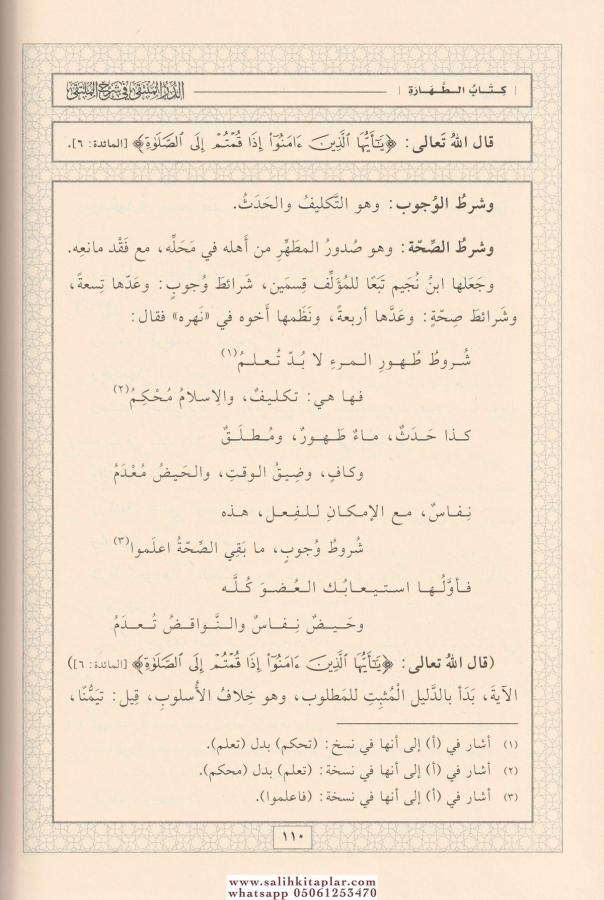 كِتَابُ الطَّهَارَةِ
الدُّرُّ المُنْتَقَى فِي شَرْحِ المُلْتَقَى
قال اللهُ تَعالى: ﴿يَٰٓأَيُّهَا ٱلَّذِينَ ءَامَنُوٓاْ إِذَا قُمۡتُمۡ إِلَى ٱلصَّلَوٰةِ﴾ [المائدة: ٦].
وشرطُ الوُجوب: وهو التَّكليفُ والحَدَثُ.
وشرطُ الصِّحّة: وهو صُدورُ المطَهِّرِ من أَهله في مَحَلِّه، مع فَقْد مانعِه.
وجَعَلها ابنُ نُجَيم تَبَعًا للمُؤلِّف قِسمَين، شَرائطَ وُجوبٍ: وعَدّها تِسعةً،
وشَرائطَ صِحّةٍ: وعَدَّها أربعةً، ونَظَمها أخوه في «نَهره» فقال:
شُروطُ طُهورِ المرءِ لا بُدّ تُعلمُ(١)
فها هي: تكليفٌ، والاِسلامُ مُحْكِمُ(٢)
كذا حَدَثٌ، ماءٌ طَهورٌ، ومُطلَقٌ
وكافٍ، وضِيقُ الوقتِ، والحَيضُ مُعْدَمُ
نِفاسٌ، مع الإمكانِ للفِعل، هذه
شُروطُ وُجوبٍ، ما بَقِي الصِّحّةُ اعلَموا(٣)
فأوَّلُها استيعابُك العُضوَ كُلَّه
وحَيضٌ نِفاسٌ والنَّواقضُ تُعدَمُ
(قال اللهُ تعالى: ﴿يَٰٓأَيُّهَا ٱلَّذِينَ ءَامَنُوٓاْ إِذَا قُمۡتُمۡ إِلَى ٱلصَّلَوٰةِ﴾ [المائدة: ٦])
الآيةَ، بَدَأ بالدَّليل الْمُثبِتِ للمَطلوب، وهو خِلافُ الأُسلوبِ، قِيل: تَيَمُّنًا،
(١) أشار في (أ) إلى أنها في نسخ: (تحكم) بدل (تعلم).
(٢) أشار في (أ) إلى أنها في نسخة: (تعلم) بدل (محكم).
(٣) أشار في (أ) إلى أنها في نسخة: (فاعلموا).
١١٠
www.salihkitaplar.com
whatsapp 05061253470